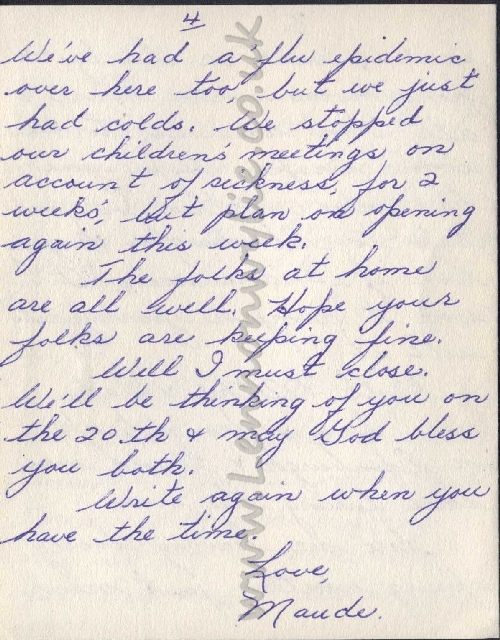 4
We've had a 'flu epidemic
over here too, but we just
had colds. We stopped
our children's meetings on
account of sickness, for 2
weeks', but plan on opening
again this week.
The folks at home
are all well. Hope your
folks are keeping fine.
Well I must close.
We'll be thinking of you on
the 20th & may God bless
you both.
Write again when you
have the time.
Love,
Maude.